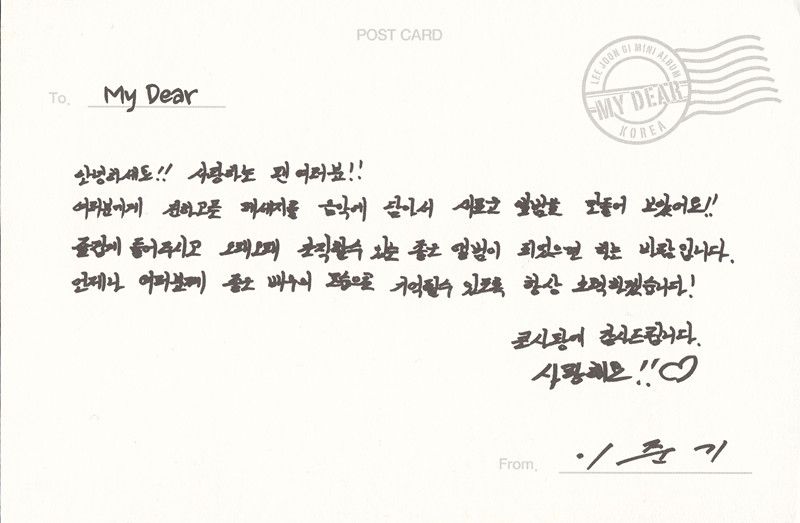 POST CARD
LEE JOON GI MINI ALBUM
MY DEAR
KOREA
To. My Dear
안녕하세요!! 사랑하는 팬 여러분!!
여러분께 전하고픈 메세지를 음악에 담아서 새로운 앨범을 만들어 보았어요!!
즐겁게 들어주시고 오래오래 간직할수 있는 좋은 앨범이 되었으면 하는 바람입니다.
언제나 여러분께 좋은 배우의 모습으로 기억될수 있도록 항상 노력하겠습니다!
감사드립니다.
사랑해요!!♡
From. 이준기